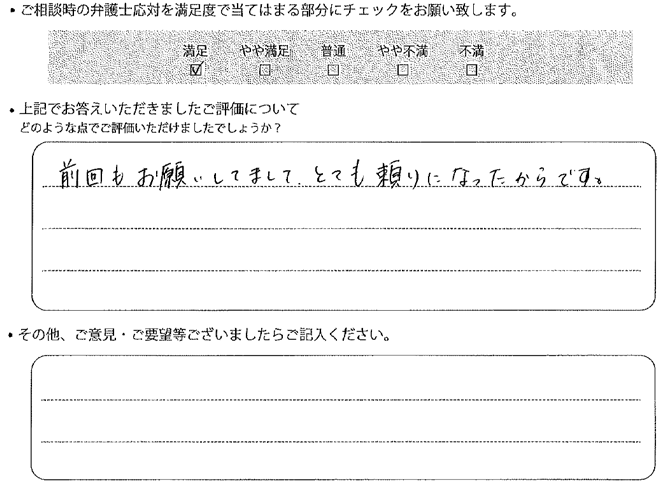 ・ご相談時の弁護士応対を満足度で当てはまる部分にチェックをお願い致します。
満足 やや満足 普通 やや不満 不満
☑ ☐ ☐ ☐ ☐
・上記でお答えいただきましたご評価について
どのような点でご評価いただけましたでしょうか?
前回もお願いしてまして、とても頼りになったからです。
・その他、ご意見・ご要望等ございましたらご記入ください。